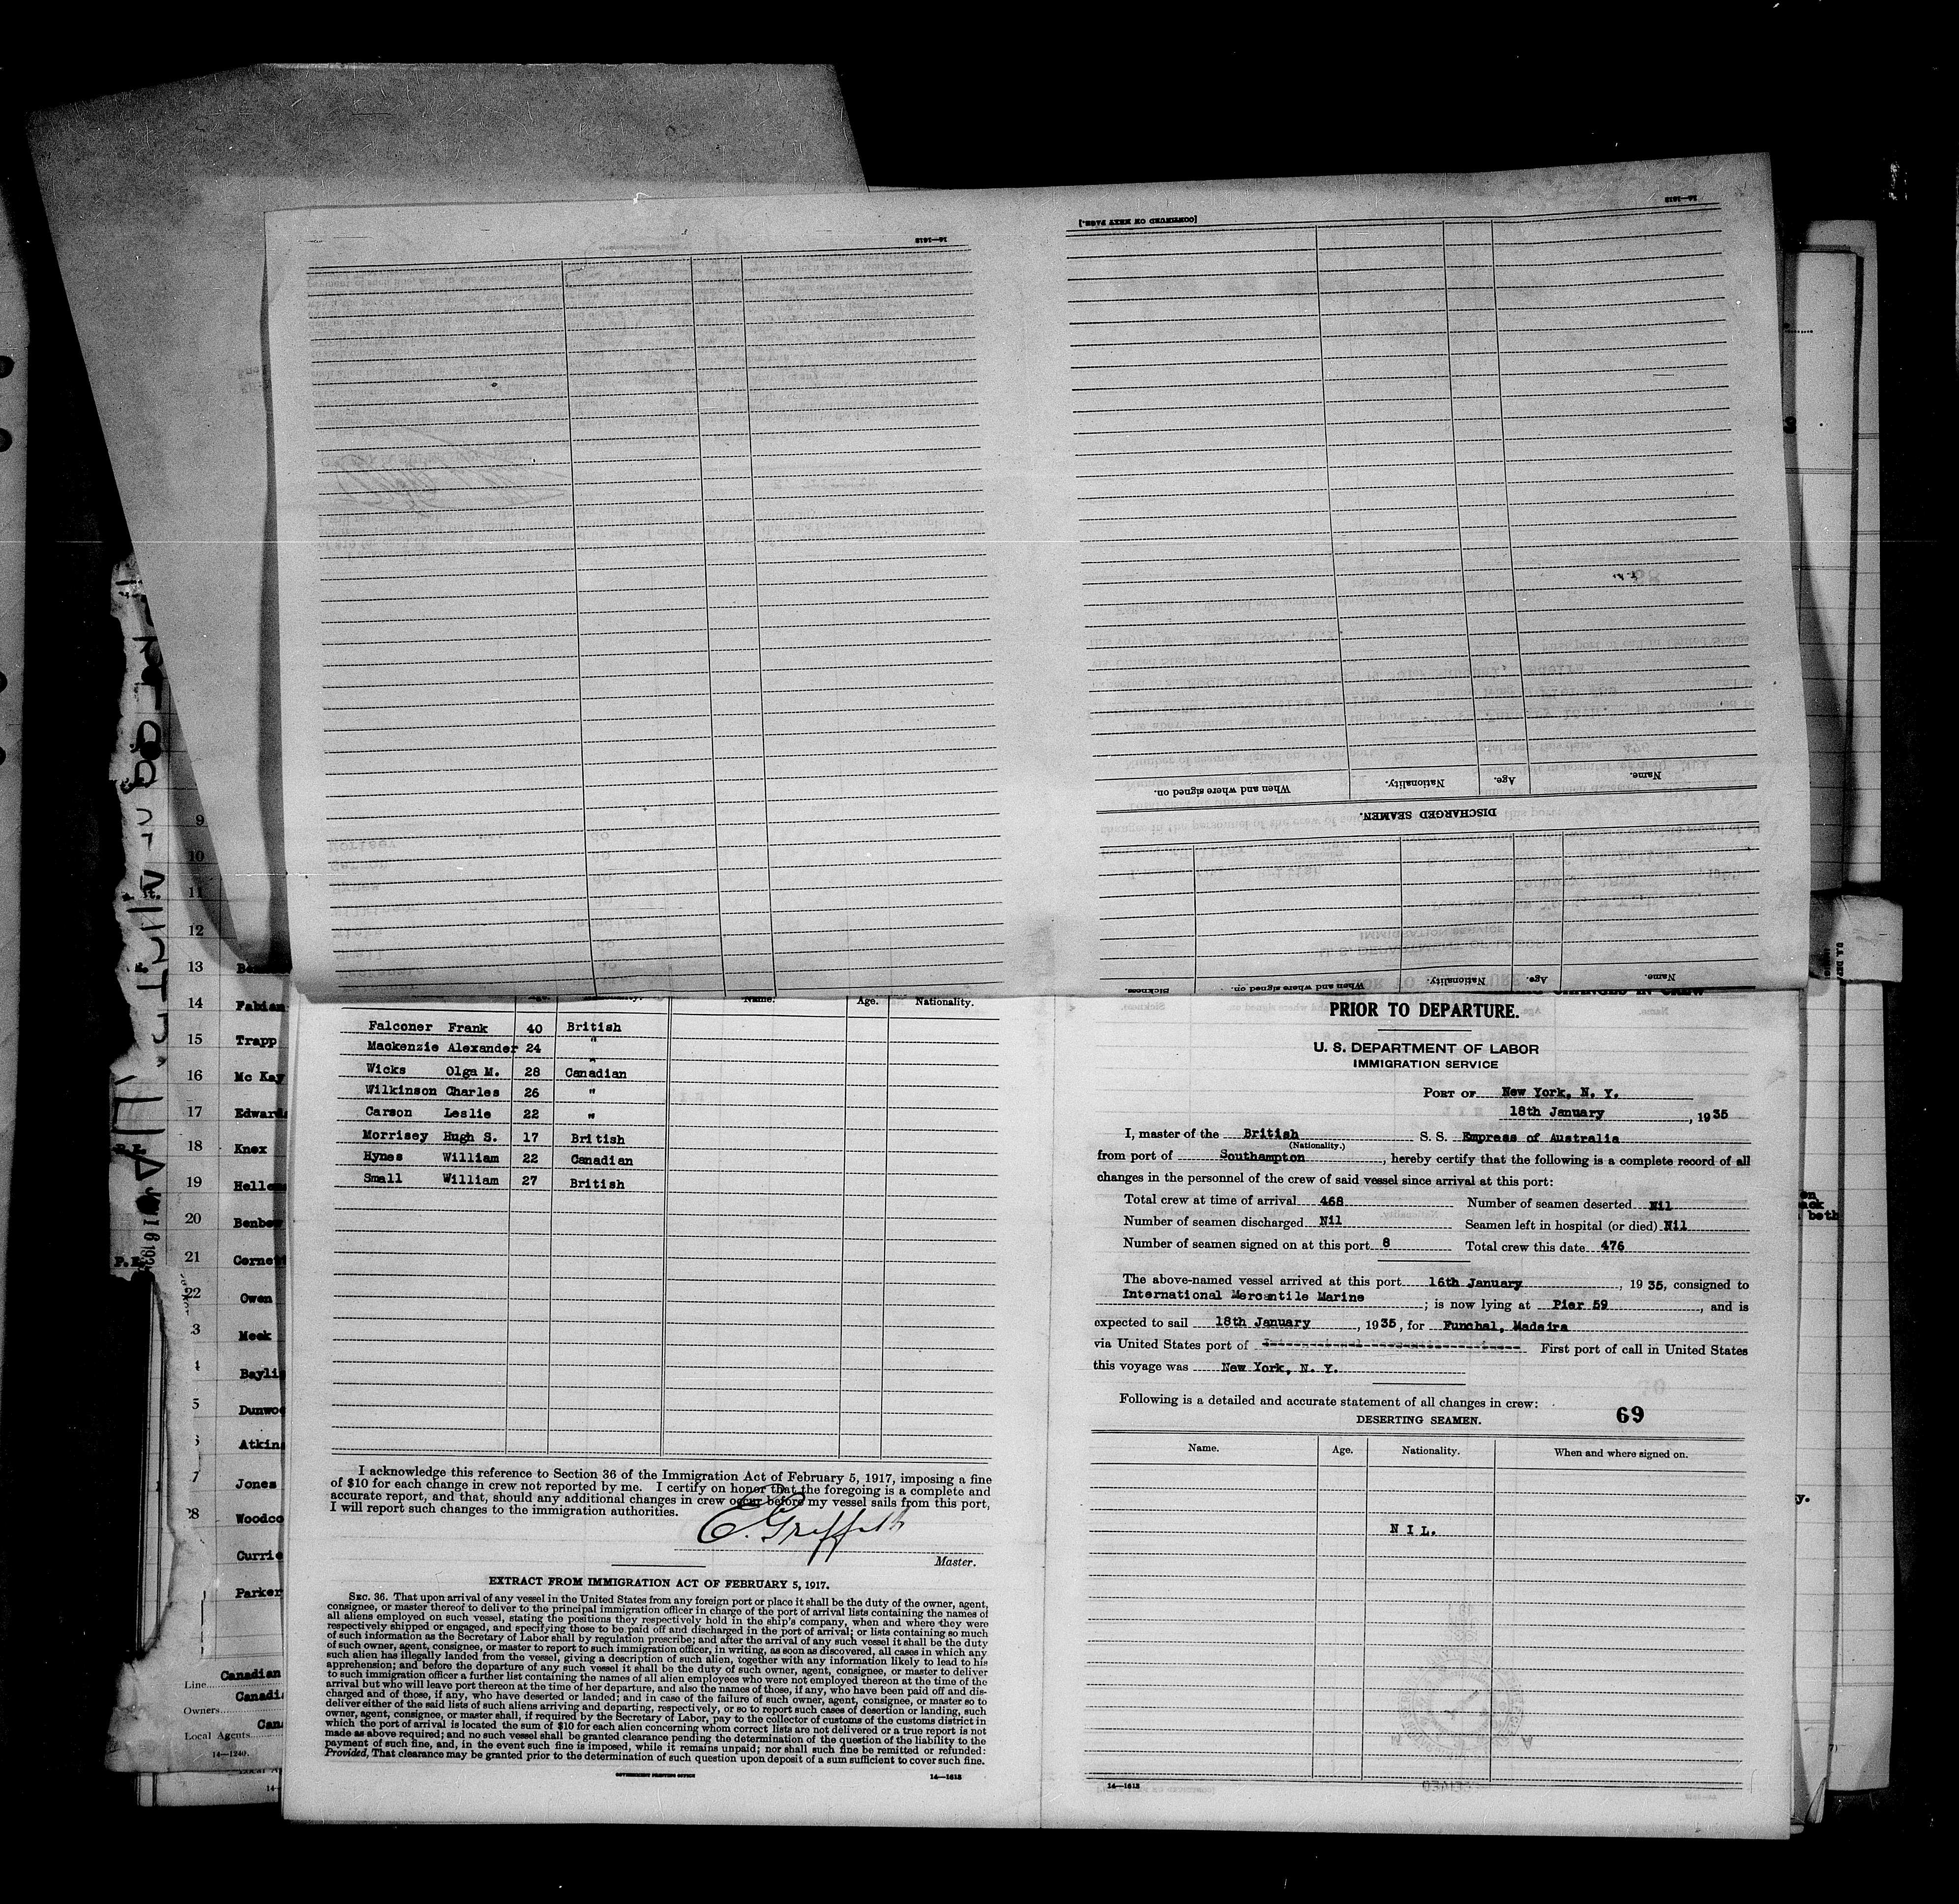 [CONTINUED ON NEXT PAGE.]
14—1613
14—1613
Name. Age. Nationality. When and where signed on.
DISCHARGED SEAMEN.
Name. Age. Nationality. When and where signed on. Sickness.
9
10
11
12
13
14 Fabian
15 Trapp
16 Mc Kay
17 Edwards
18 Knox
19
20 Benbow
21
22 Owen
Meek
Jones
Parker
Line Canadian
Owners
Local Agents
14—1240.
Age. Nationality. Name. Age. Nationality.
Falconer Frank 40 British
Mackenzie Alexander 24 "
Wicks Olga M. 28 Canadian
Wilkinson Charles 26 "
Carson Leslie 22 "
Morrisey Hugh S. 17 British
Hynes William 22 Canadian
Small William 27 British
I acknowledge this reference to Section 36 of the Immigration Act of February 5, 1917, imposing a fine
of $10 for each change in crew not reported by me. I certify on honor that the foregoing is a complete and
accurate report, and that, should any additional changes in crew occur before my vessel sails from this port,
I will report such changes to the immigration authorities.
E. Griffith
Master.
EXTRACT FROM IMMIGRATION ACT OF FEBRUARY 5, 1917.
SEC. 36. That upon arrival of any vessel in the United States from any foreign port or place it shall be the duty of the owner, agent,
consignee, or master thereof to deliver to the principal immigration officer in charge of the port of arrival lists containing the names of
all aliens employed on such vessel, stating the positions they respectively hold in the ship's company, when and where they were
respectively shipped or engaged, and specifying those to be paid off and discharged in the port of arrival; or lists containing so much
of such information as the Secretary of Labor shall by regulation prescribe; and after the arrival of any such vessel it shall be the duty
of such owner, agent, consignee, or master to report to such immigration officer, in writing, as soon as discovered, all cases in which any
such alien has illegally landed from the vessel, giving a description of such alien, together with any information likely to lead to his
apprehension; and before the departure of any such vessel it shall be the duty of such owner, agent, consignee, or master to deliver
to such immigration officer a further list containing the names of all alien employees who were not employed thereon at the time of the
arrival but who will leave port thereon at the time of her departure, and also the names of those, if any, who have been paid off and dis-
charged and of those, if any, who have deserted or landed; and in case of the failure of such owner, agent, consignee, or master so to
deliver either of the said lists of such aliens arriving and departing, respectively, or so to report such cases of desertion or landing, such
owner, agent, consignee, or master shall, if required by the Secretary of Labor, pay to the collector of customs of the customs district in
which the port of arrival is located the sum of $10 for each alien concerning whom correct lists are not delivered or a true report is not
made as above required; and no such vessel shall be granted clearance pending the determination of the question of the liability to the
payment of such fine, and, in the event such fine is imposed, while it remains unpaid; nor shall such fine be remitted or refunded:
Provided, That clearance may be granted prior to the determination of such question upon deposit of a sum sufficient to cover such fine.
GOVERNMENT PRINTING OFFICE 14—1613
CHANGES IN CREW
PRIOR TO DEPARTURE.
U. S. DEPARTMENT OF LABOR
IMMIGRATION SERVICE
PORT OF New York, N. Y.
18th January, 1935
I, master of the British S. S. Empress of Australia
(Nationality.)
from port of Southampton, hereby certify that the following is a complete record of all
changes in the personnel of the crew of said vessel since arrival at this port:
Total crew at time of arrival 468 Number of seamen deserted Nil
Number of seamen discharged Nil Seamen left in hospital (or died) Nil
Number of seamen signed on at this port 8 Total crew this date 476
The above-named vessel arrived at this port 16th January, 1935, consigned to
International Mercantile Marine; is now lying at Pier 59, and is
expected to sail 18th January, 1935, for Funchal, Madeira
via United States port of First port of call in United States
this voyage was New York, N. Y.
Following is a detailed and accurate statement of all changes in crew:
DESERTING SEAMEN. 69
Name. Age. Nationality. When and where signed on.
NIL.
14—1613